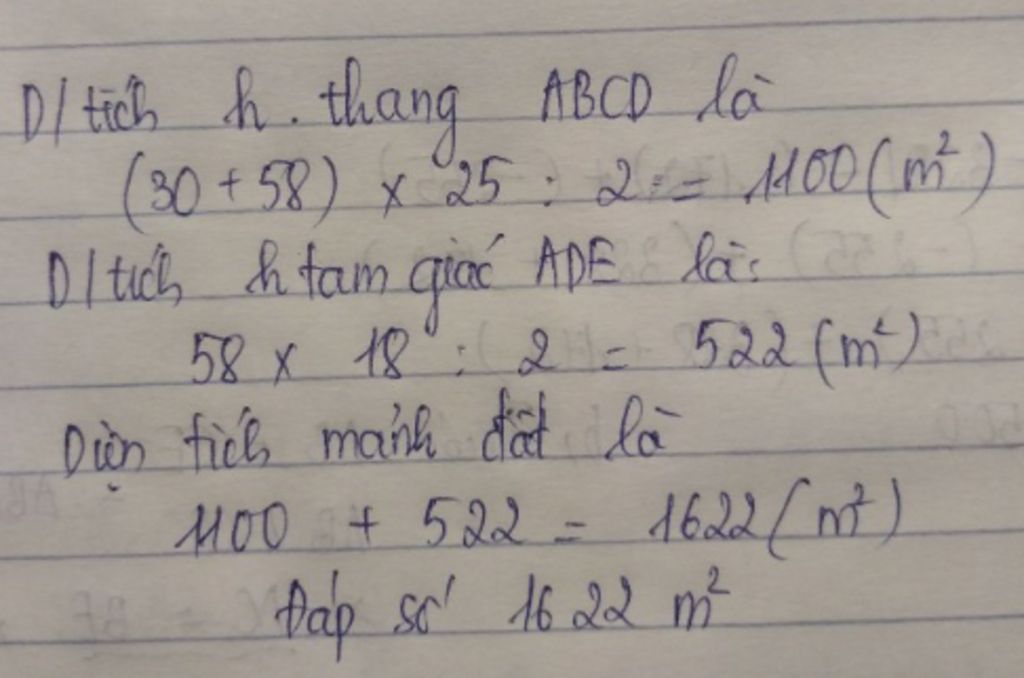 D/tích h. thang ABCD là
(30 + 58) x 25 : 2 = 1100 (m²)
D/tích h tam giác ADE là:
58 x 18 : 2 = 522 (m²)
Diện tích mảnh đất là
1100 + 522 = 1622 (m²)
Đáp số 1622 m²